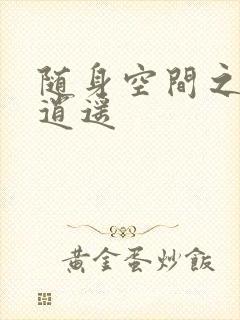 随身空間之
逍遥
黄金蛋炒飯